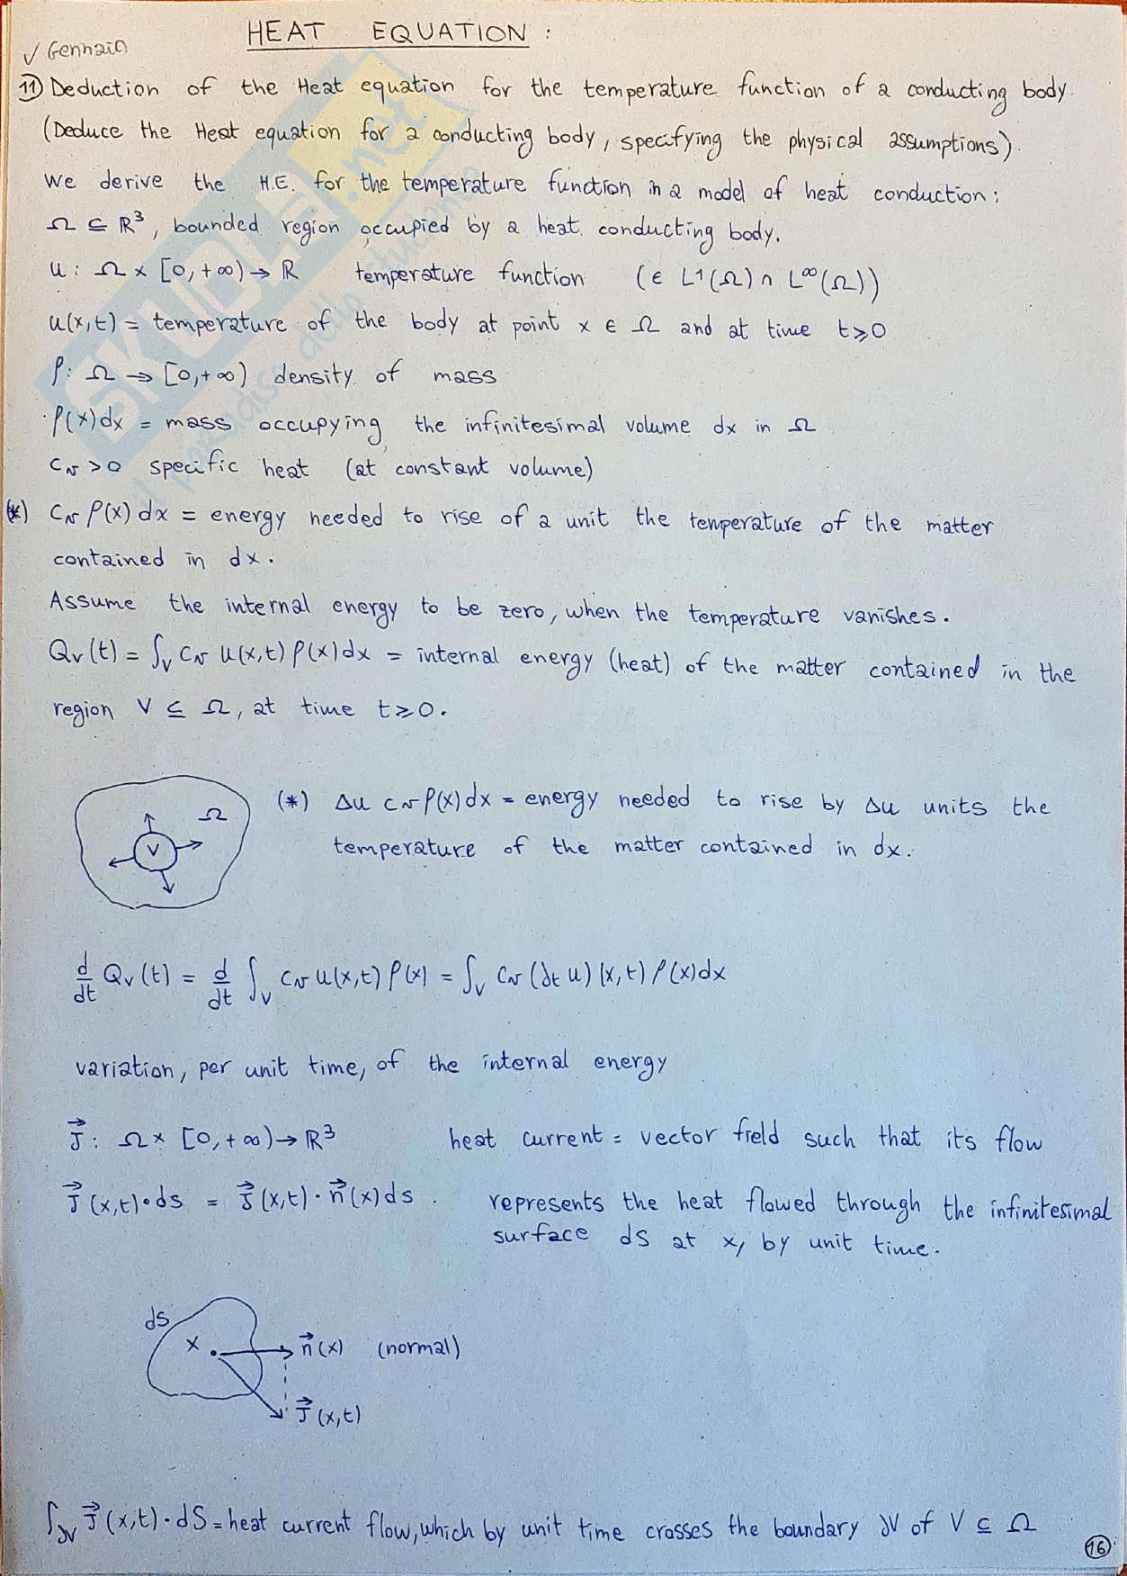 HEAT EQUATION :
✓ Gennaio
⑪ Deduction of the Heat equation for the temperature function of a conducting body.
(Deduce the Heat equation for a conducting body, specifying the physical assumptions).
We derive the H.E. for the temperature function in a model of heat conduction:
Ω ⊆ ℝ³, bounded region occupied by a heat conducting body.
u: Ω × [0,+∞) → ℝ temperature function (∈ L¹(Ω) ∩ L^∞(Ω))
u(x,t) = temperature of the body at point x ∈ Ω and at time t≥0
ρ: Ω → [0,+∞) density of mass
ρ(x)dx = mass occupying the infinitesimal volume dx in Ω
c_v >0 specific heat (at constant volume)
(*) c_v ρ(x)dx = energy needed to rise of a unit the temperature of the matter
contained in dx.
Assume the internal energy to be zero, when the temperature vanishes.
Q_V(t) = ∫_V c_v u(x,t) ρ(x)dx = internal energy (heat) of the matter contained in the
region V ⊆ Ω, at time t≥0.
Ω
V
(*) Δu c_v ρ(x)dx = energy needed to rise by Δu units the
temperature of the matter contained in dx.
d/dt Q_V(t) = d/dt ∫_V c_v u(x,t) ρ(x) = ∫_V c_v (∂t u)(x,t) ρ(x)dx
variation, per unit time, of the internal energy
J⃗: Ω × [0,+∞) → ℝ³ heat current = vector field such that its flow
J⃗(x,t)•ds = J⃗(x,t)·n⃗(x)ds. represents the heat flowed through the infinitesimal
surface dS at x, by unit time.
dS
x
n⃗(x) (normal)
J⃗(x,t)
∫_∂V J⃗(x,t)·dS = heat current flow, which by unit time crosses the boundary ∂V of V ⊆ Ω
16